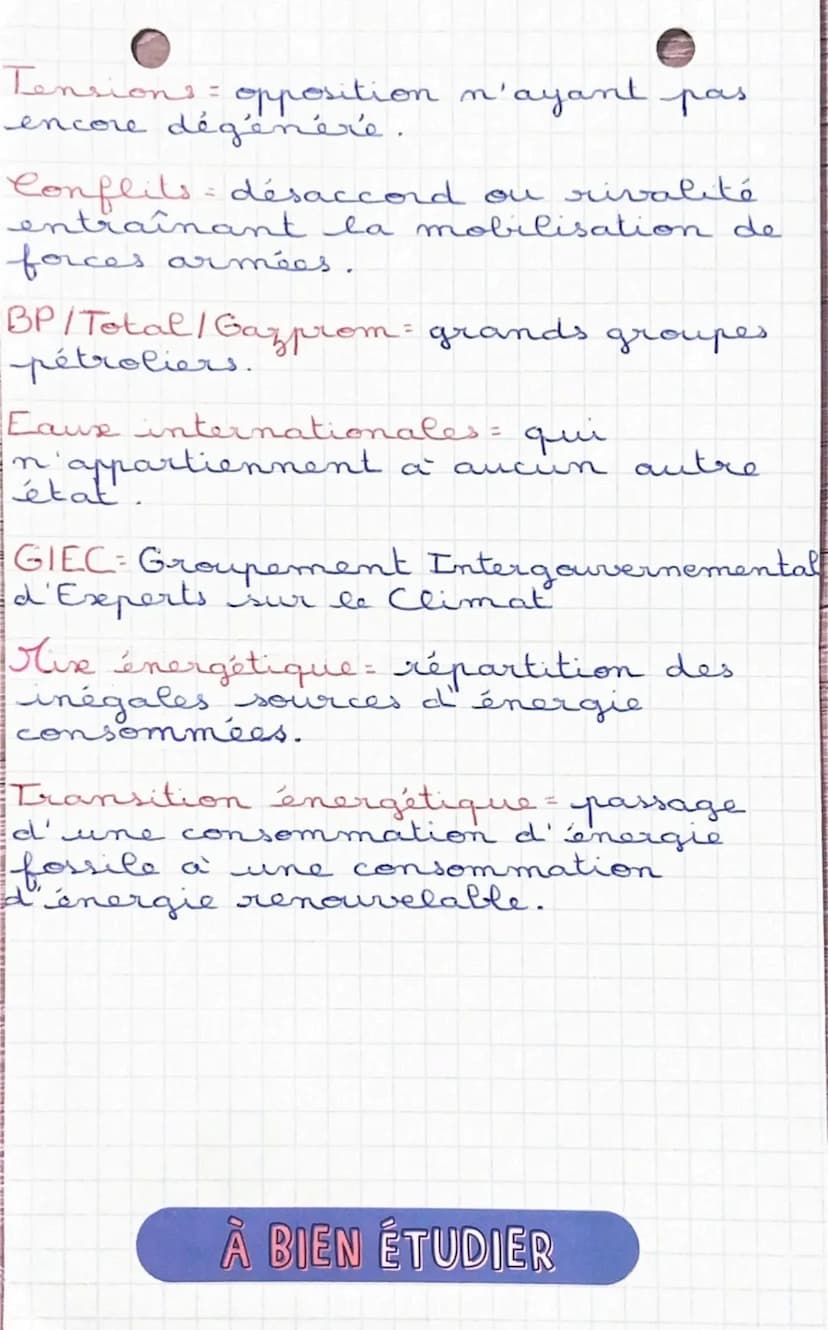 Tensions = opposition n'ayant pas
encore dégénéré.
Conflits = désaccord ou rivalité
entraînant la mobilisation de
forces armées.
BP/Total/Gazprom = grands groupes
pétroliers.
Eaux internationales = qui
n'appartiennent à aucun autre
état.
GIEC = Groupement Intergouvernemental
d'Experts sur le Climat
Mix énergétique = répartition des
inégales sources d'énergie
consommées.
Transition énergétique = passage
d'une consommation d'énergie
fossile à une consommation
d'énergie renouvelable.
À BIEN ÉTUDIER